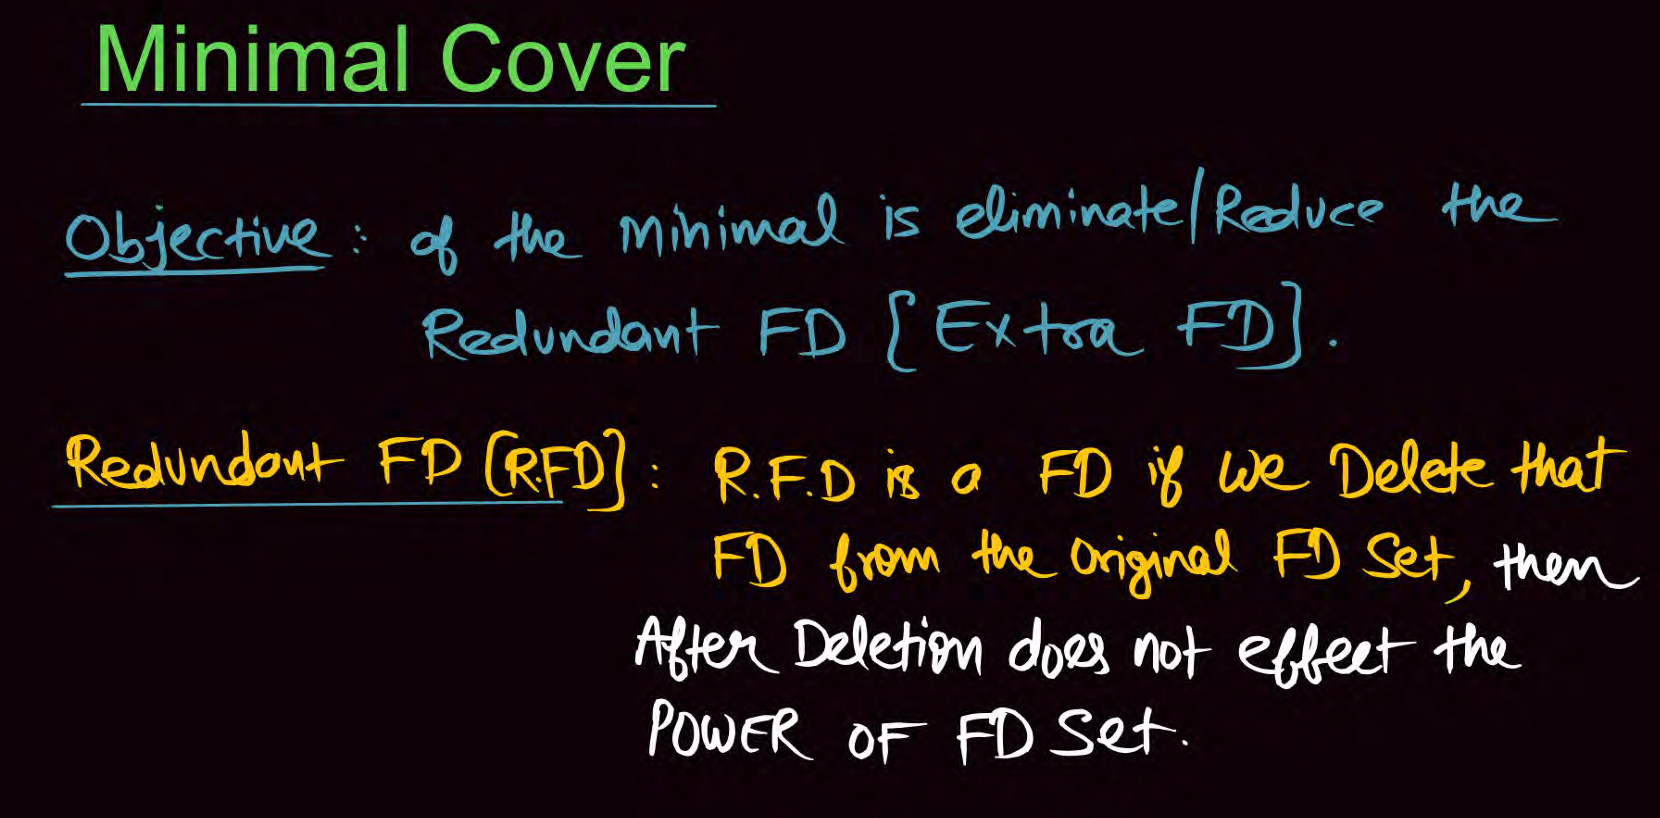 Minimal Cover
Objective : of the minimal is eliminate/Reduce the
Redundant FD [Extra FD].
Redundant FD [R.FD] : R.F.D is a FD if we Delete that
FD from the original FD Set, then
After Deletion does not effect the
POWER OF FD Set.